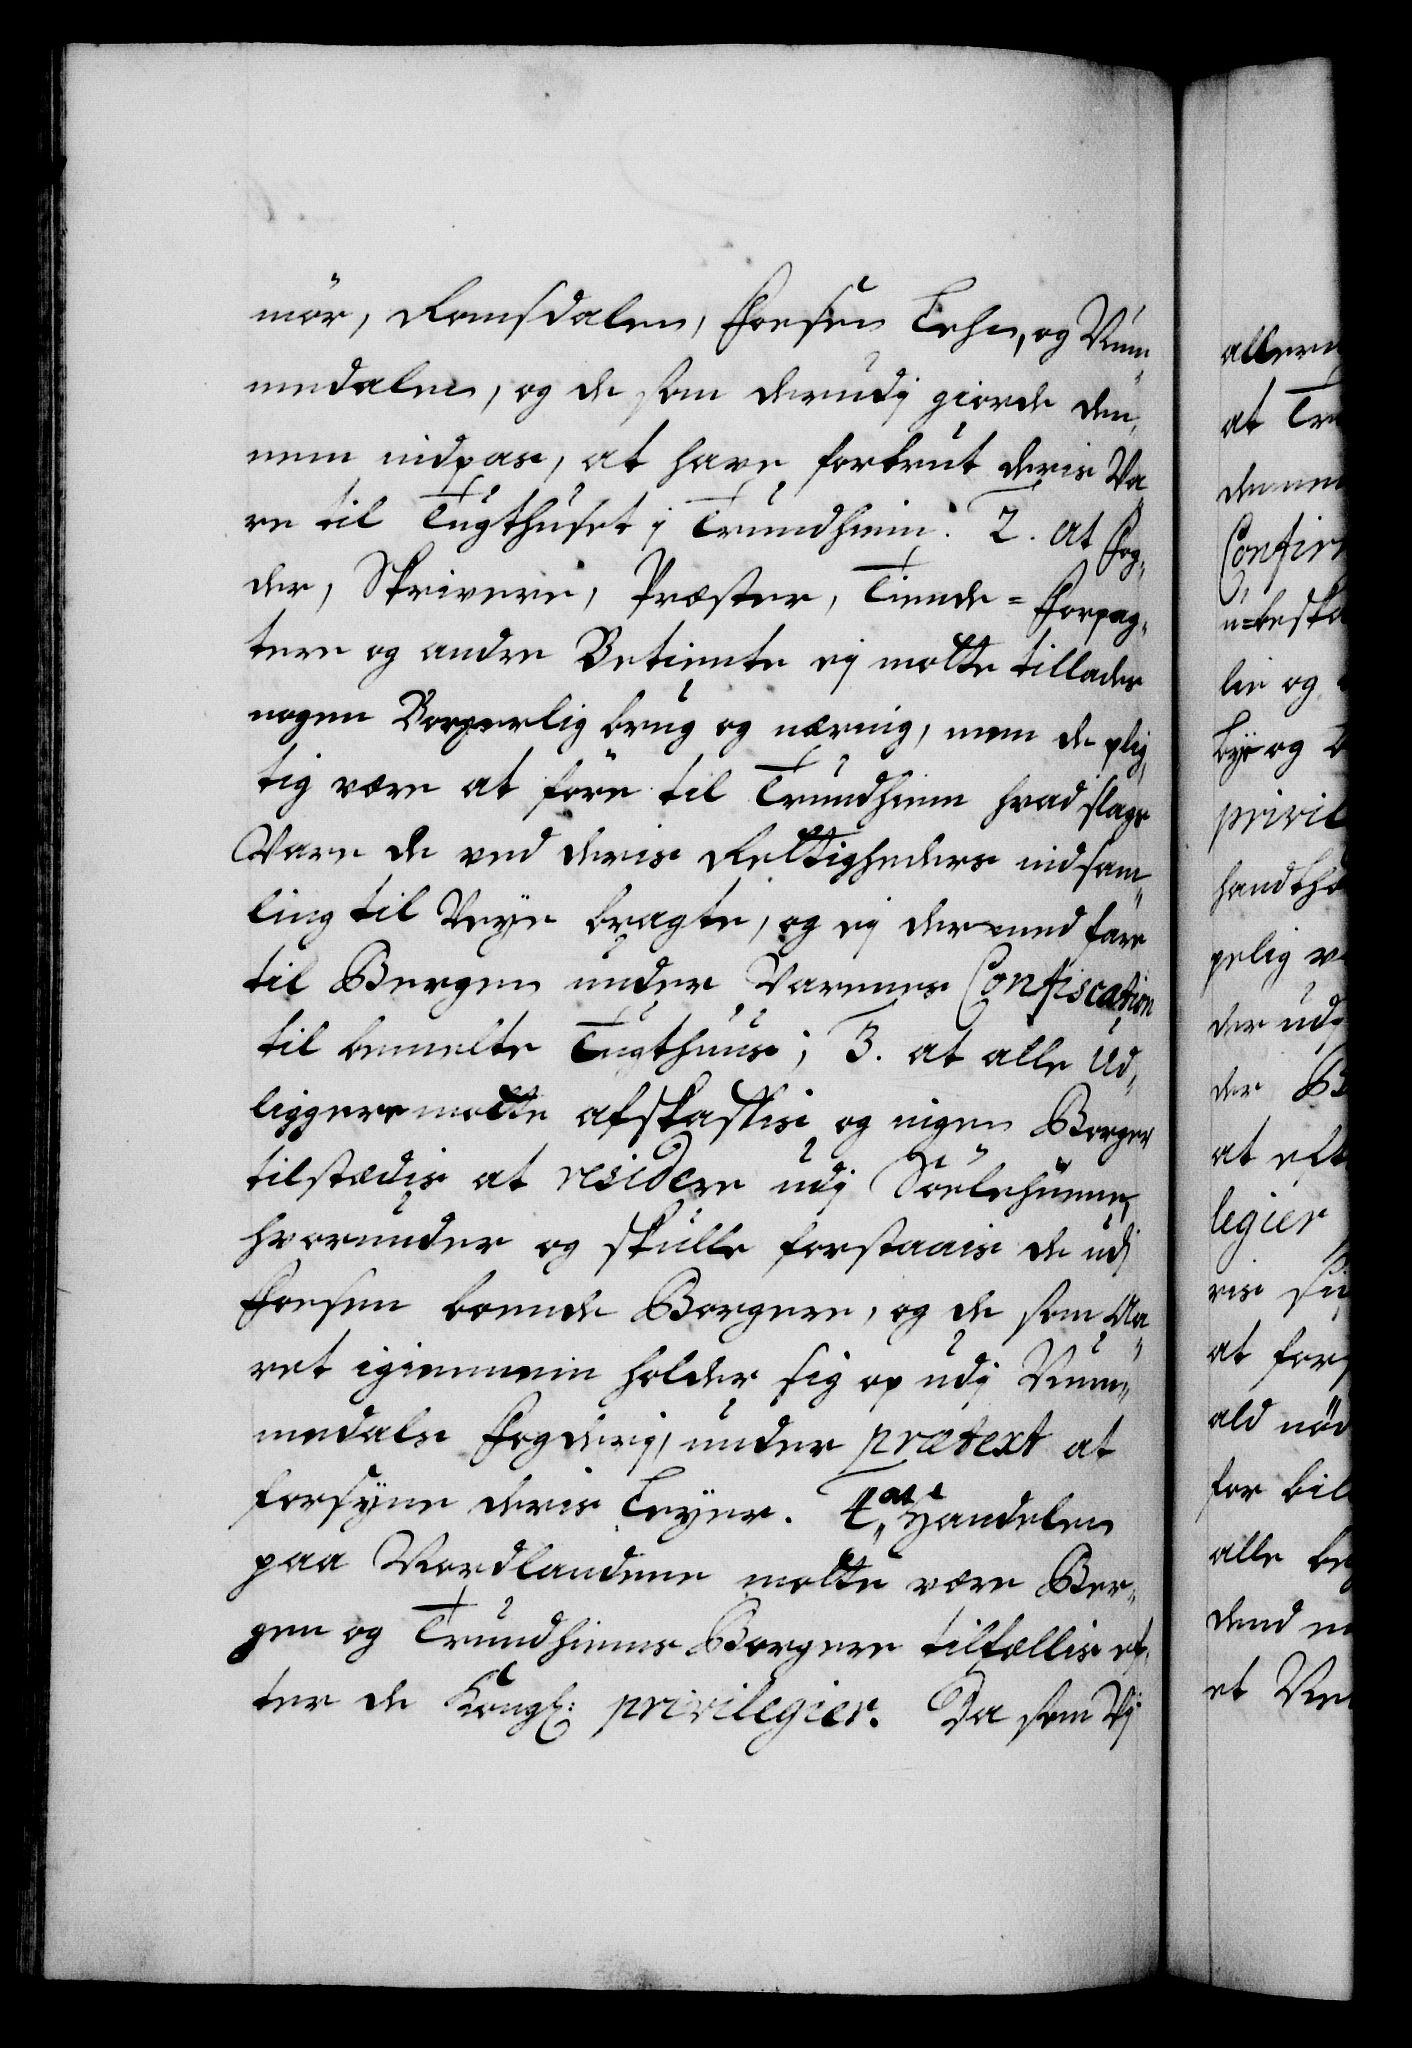 mör, Romsdalen, Fosen Lehn, og Num¬
medalen, og de som derudj giorde den¬
nem indpas, at have forbrut deris Va
re til Tugthuset i Trundhiem. 2. at Fog¬
der, Skrivere, Præster, Tiende-Forpag¬
tere og andre Betiente ej motte tillades
nogen Borgerlig brug og næring, men de plig
tig være at före til Trundhiem hvad slags
Vare de ved deris Rettigheders indsam¬
ling til Veye bragte, og ej dermed fare
til Bergen under Varenes Confiscation
til bemelte Tugthuus; 3. at alle Ud¬
liggere motte afskaffis og ingen Borger
tilstædis at residere udj Söelehunne,
hvorunder og skulle forstaais de udj
Fosen boende Borgere, og de som Aa¬
ret igiennem holder sig op udj Num¬
medals Fogderij, under prætext at
forsyne deris Leyer. 4. at Handelen
paa Nordlandene motte være Ber¬
gen og Trundhiems Borgere tilfællis ef¬
ter de Kongl: privilegier. Da som Vj
allern
at Tru
dennem
Confir
u-beska
lie og
bye og b
privil
handthæ
pelig v
der udj
der B
at eft
legier
ris
at for
ald nöd
for bil
alle be
dend
et